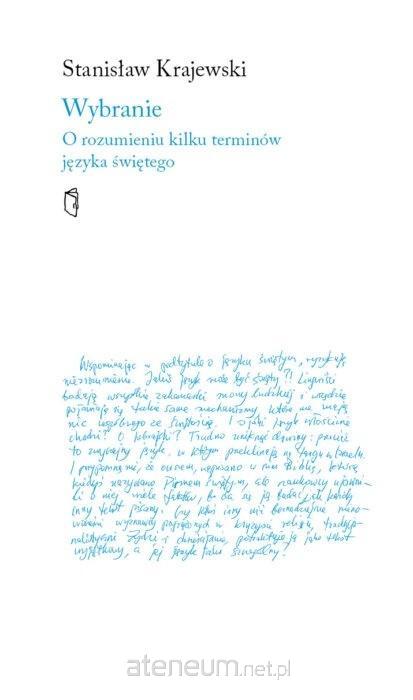 Stanisław Krajewski
Wybranie
O rozumieniu kilku terminów
języka świętego
Wspominając w podtytule o języku świętym, ryzykuję
nieporozumienie. Jakiś język może być święty?! Lingwiści
badają wszystkie zakamarki mowy ludzkiej i wszędzie
pojawiają się takie same mechanizmy, które nie mają
nic wspólnego ze świętością. I o jaki język właściwie
chodzi? O hebrajski? Trudno uniknąć : przecież
to zwyczajny język, w którym przeklinają na targu w Izraelu.
I przypomną mi, że owszem, napisano w nim Biblię, którą
kiedyś nazywano Pismem Świętym, ale naukowcy
o niej wiele faktów, bo da się ją badać jak każdy
inny tekst pisany. Czy ktoś inny niż
wyznawcy pogrążonych w kryzysie religii,
Żydzi i chrześcijanie, potraktuje ją jako tekst
wyjątkowy, a jej język jako szczególny?
ateneum.net.pl